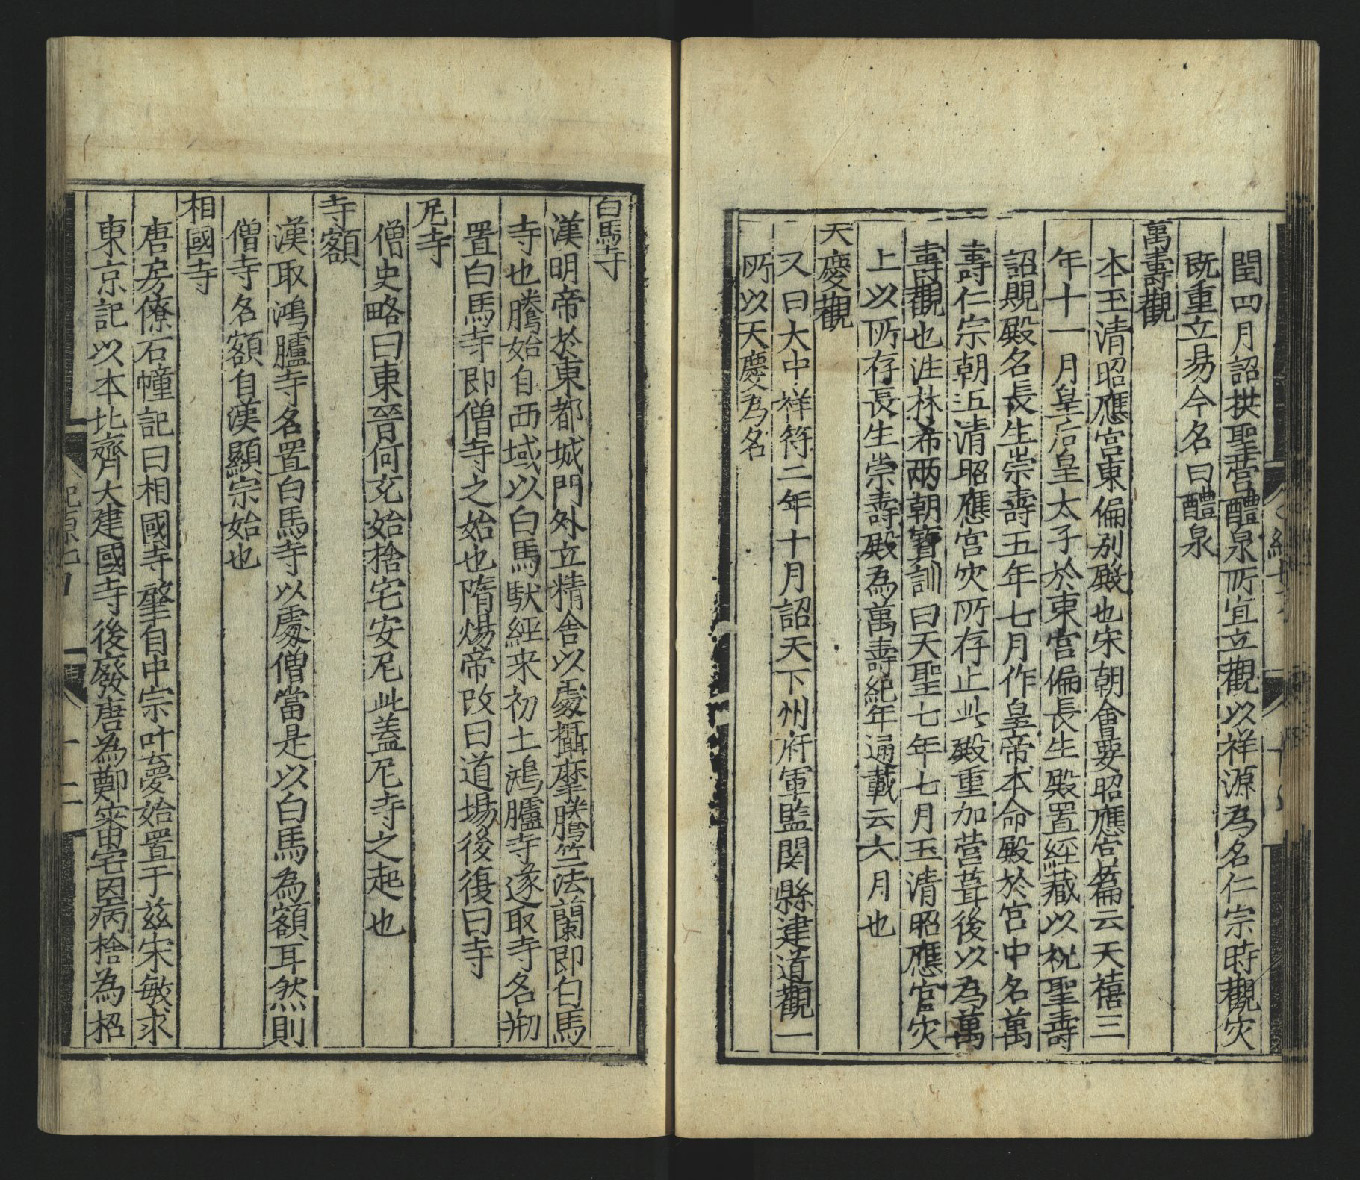 閏四月詔拱聖營醴泉所宜立觀以祥源爲名仁宗時觀灾
旣重立易今名曰醴泉
萬壽觀
本玉清昭應宮東偏別殿也宋朝會要昭應宮篇云天禧三
年十一月皇后皇太子於東宮偏長生殿置經藏以祝聖壽
詔賜殿名長生崇壽五年七月作皇帝本命殿於宮中名萬
壽仁宗朝玉清昭應宮灾所存止此殿重加营葺後以為萬
壽觀也泩林希兩朝寶訓曰天聖七年七月玉清昭應宮灾
上以所存長生崇壽殿為萬壽紀年通載云六月也
天慶觀
又曰大中祥符二年十月詔天下州府軍監関縣建道觀一
所以天慶為名
白馬寺
漢明帝於東都城門外立精舍以處攝摩騰竺法蘭即白馬
寺也騰始自西域以白馬馱經来初土鴻臚寺遂取寺名刱
置白馬寺即僧寺之始也隋煬帝改曰道場後復曰寺
尼寺
僧史略曰東晉何充始捨宅安尼此蓋尼寺之起也
寺額
漢取鴻臚寺名置白馬寺以處僧當是以白馬為額耳然則
僧寺名額自漢顯宗始也
相國寺
唐房僚石幢記曰相國寺肇自中宗叶夢始置于兹宋敏求
東京記以本北齊大建國寺後廢唐為鄭審宅因病捨為招